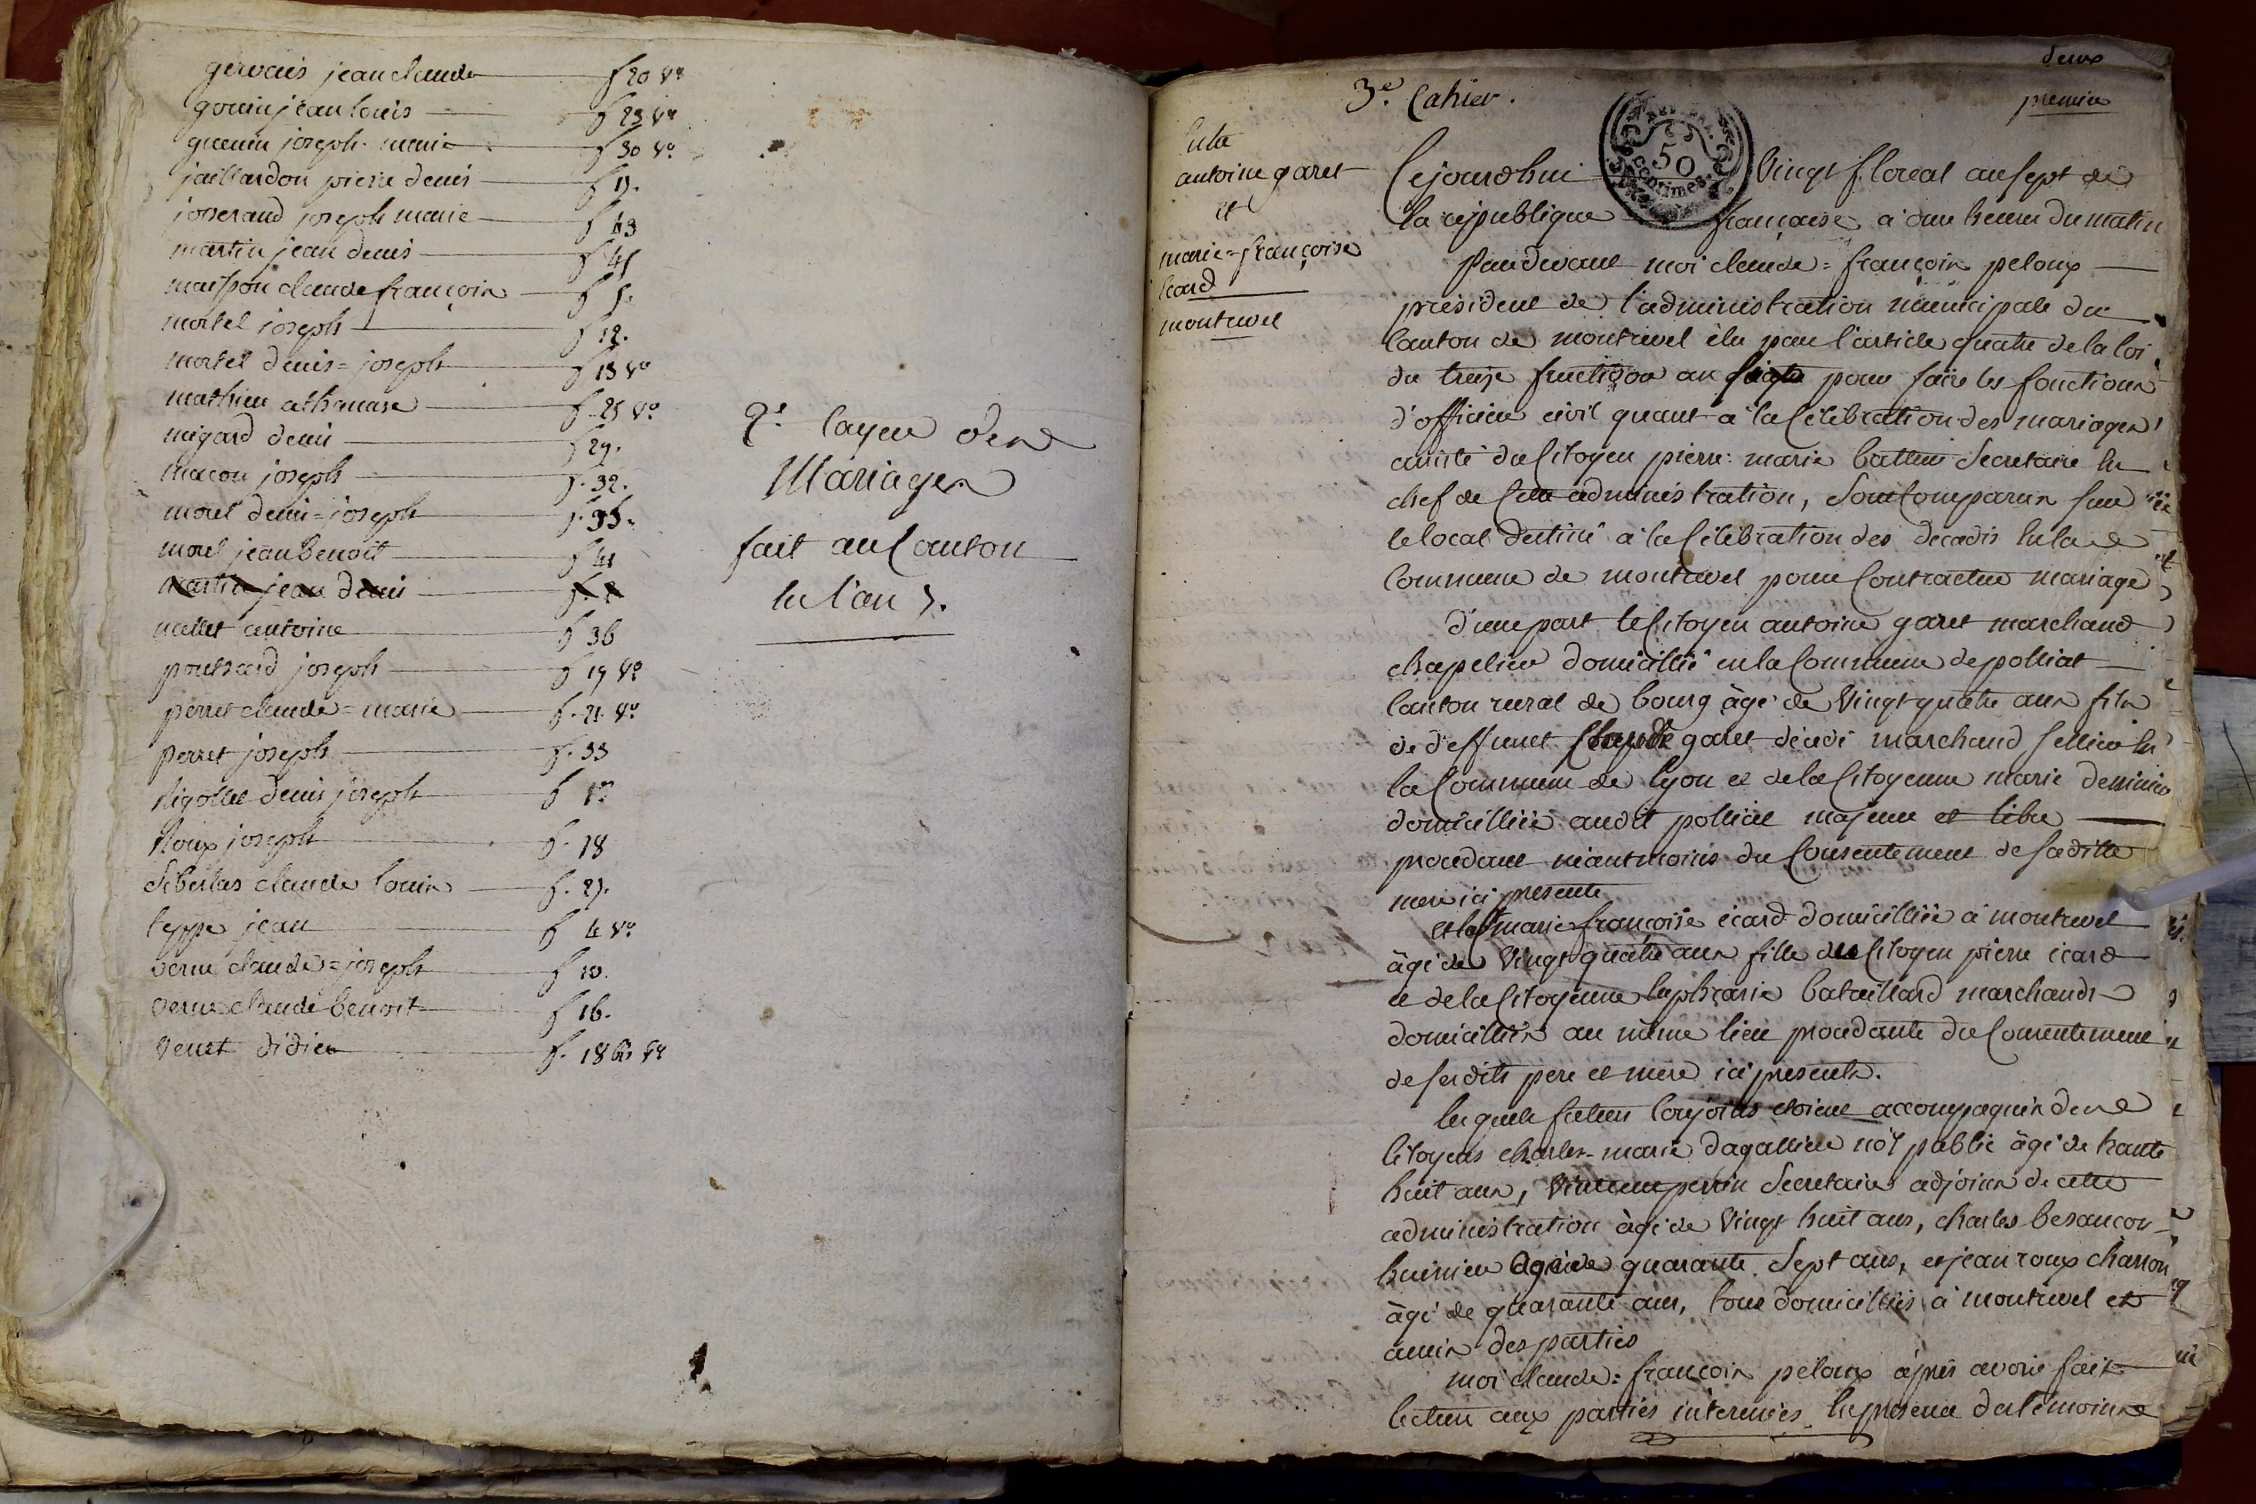 gervais jean claude f 20 vo
gouin jean louis f 23 vo
guenin joseph marie f 30 vo
jaillardon pierre denis f 11.
josserand joseph marie f 43
martin jean denis f 45
maisson claude françois f 5.
mortel joseph f 12.
mortel denis = joseph f 13 vo
mathieu athanase f 25 vo
migard denis f 29.
macon joseph f. 32.
morel denis = joseph f. 35.
morel jean benoit f 41
martin jean denis
nallet antoine f 36
pontsard joseph f 19 vo
perret claude = marie f. 21. vo
perret joseph f. 33
rigollet denis joseph
Roux joseph f. 18
claude louis f. 27.
teppe jean f 4 vo
verne claude = joseph f 10.
verne claude benoit f 16.
venet didier f. 18 bis vo
2e cayer des
Mariages
fait au Canton
en l'an 7.
deux
premier
3e. Cahier.
Entre
antoine garet
et
marie = françoise
Ecard
montrevel
50 centimes
Cejourdhui vingt floreal an sept de
la république française a onze heures du matin
Pardevant moi claude = françois peloux
président de l'administration municipale du
Canton de montrevel élu par l'article quatre de la loi
du treize fructidor an pour faire les fonctions
d'officier civil quant à la Célébration des mariages
assisté du Citoyen pierre marie battin Secretaire en
chef de Cette administration, Sont Comparus sur
le local destiné à la Célébration des decadis en la
Commune de montrevel pour Contracter mariage
d'une part le Citoyen antoine garet marchand
chapelier domicillié en la Commune de polliat
Canton rural de bourg âgé de vingt quatre ans fils
de deffunct Claude garet décédé marchand sellier en
la Commune de lyon et de la Citoyenne marie
domicilliée audit polliat majeur et libre
procedant néantmoins du Consentement de sa ditte
mere ici presente
et la Cne marie françoise écard domicilliée a montrevel
âgé de vingt quatre ans fille du Citoyen pierre écard
et de la Citoyenne bataillard marchands
domicilliés au même lieu procedante du Consentement
de ses dits pere et mère ici presents.
lesquels futurs Conjoints etoient accompagnés de
Citoyens charles - marie dagallier not public âgé de trente
huit ans, vincent perrin Secretaire adjoint de cette
administration âgé de vingt huit ans, charles besançon
huissier âgé de quarante Sept ans, et jean roux charron
âgé de quarante ans, tous domicilliés à montrevel et
amis des parties
moi claude = françois peloux après avoir fait
lecture aux parties en presence des témoins